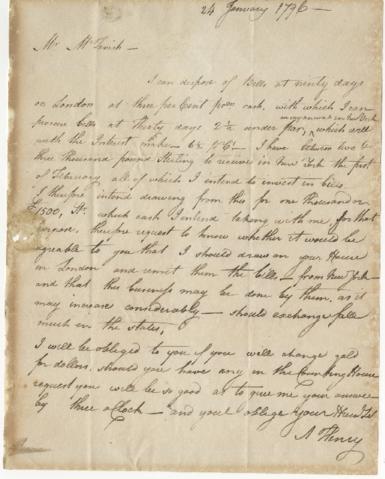 24 January 1796 —
Mr McTavish —
I can dispose of Bills at ninety days
on London at three per Cent prem cash, with which I can
on my arrival in New York
procure bills at thirty days 2½ under par, which will
with the Interest make 6½ P Ct — I have between two &
three thousand pound Sterling to receive in New York the first
of February, all of which I intend to invest in bills.
I therefore intend drawing from this for one thousand or
£1500, St. which cash I intend taking with me, for that
purpose, therefore request to know whether it would be
agreable to you that I should draw on your House
in London and remit them the bills — from New York —
and that this business may be done by them, as it
may increase considerably — should exchange fall
much in the states,
I will be obliged to you if you will change gold
for dollars, should you have any in the Counting House
request you will be so good as to give me your answer
by three oClock — and you'l oblige your
A Henry